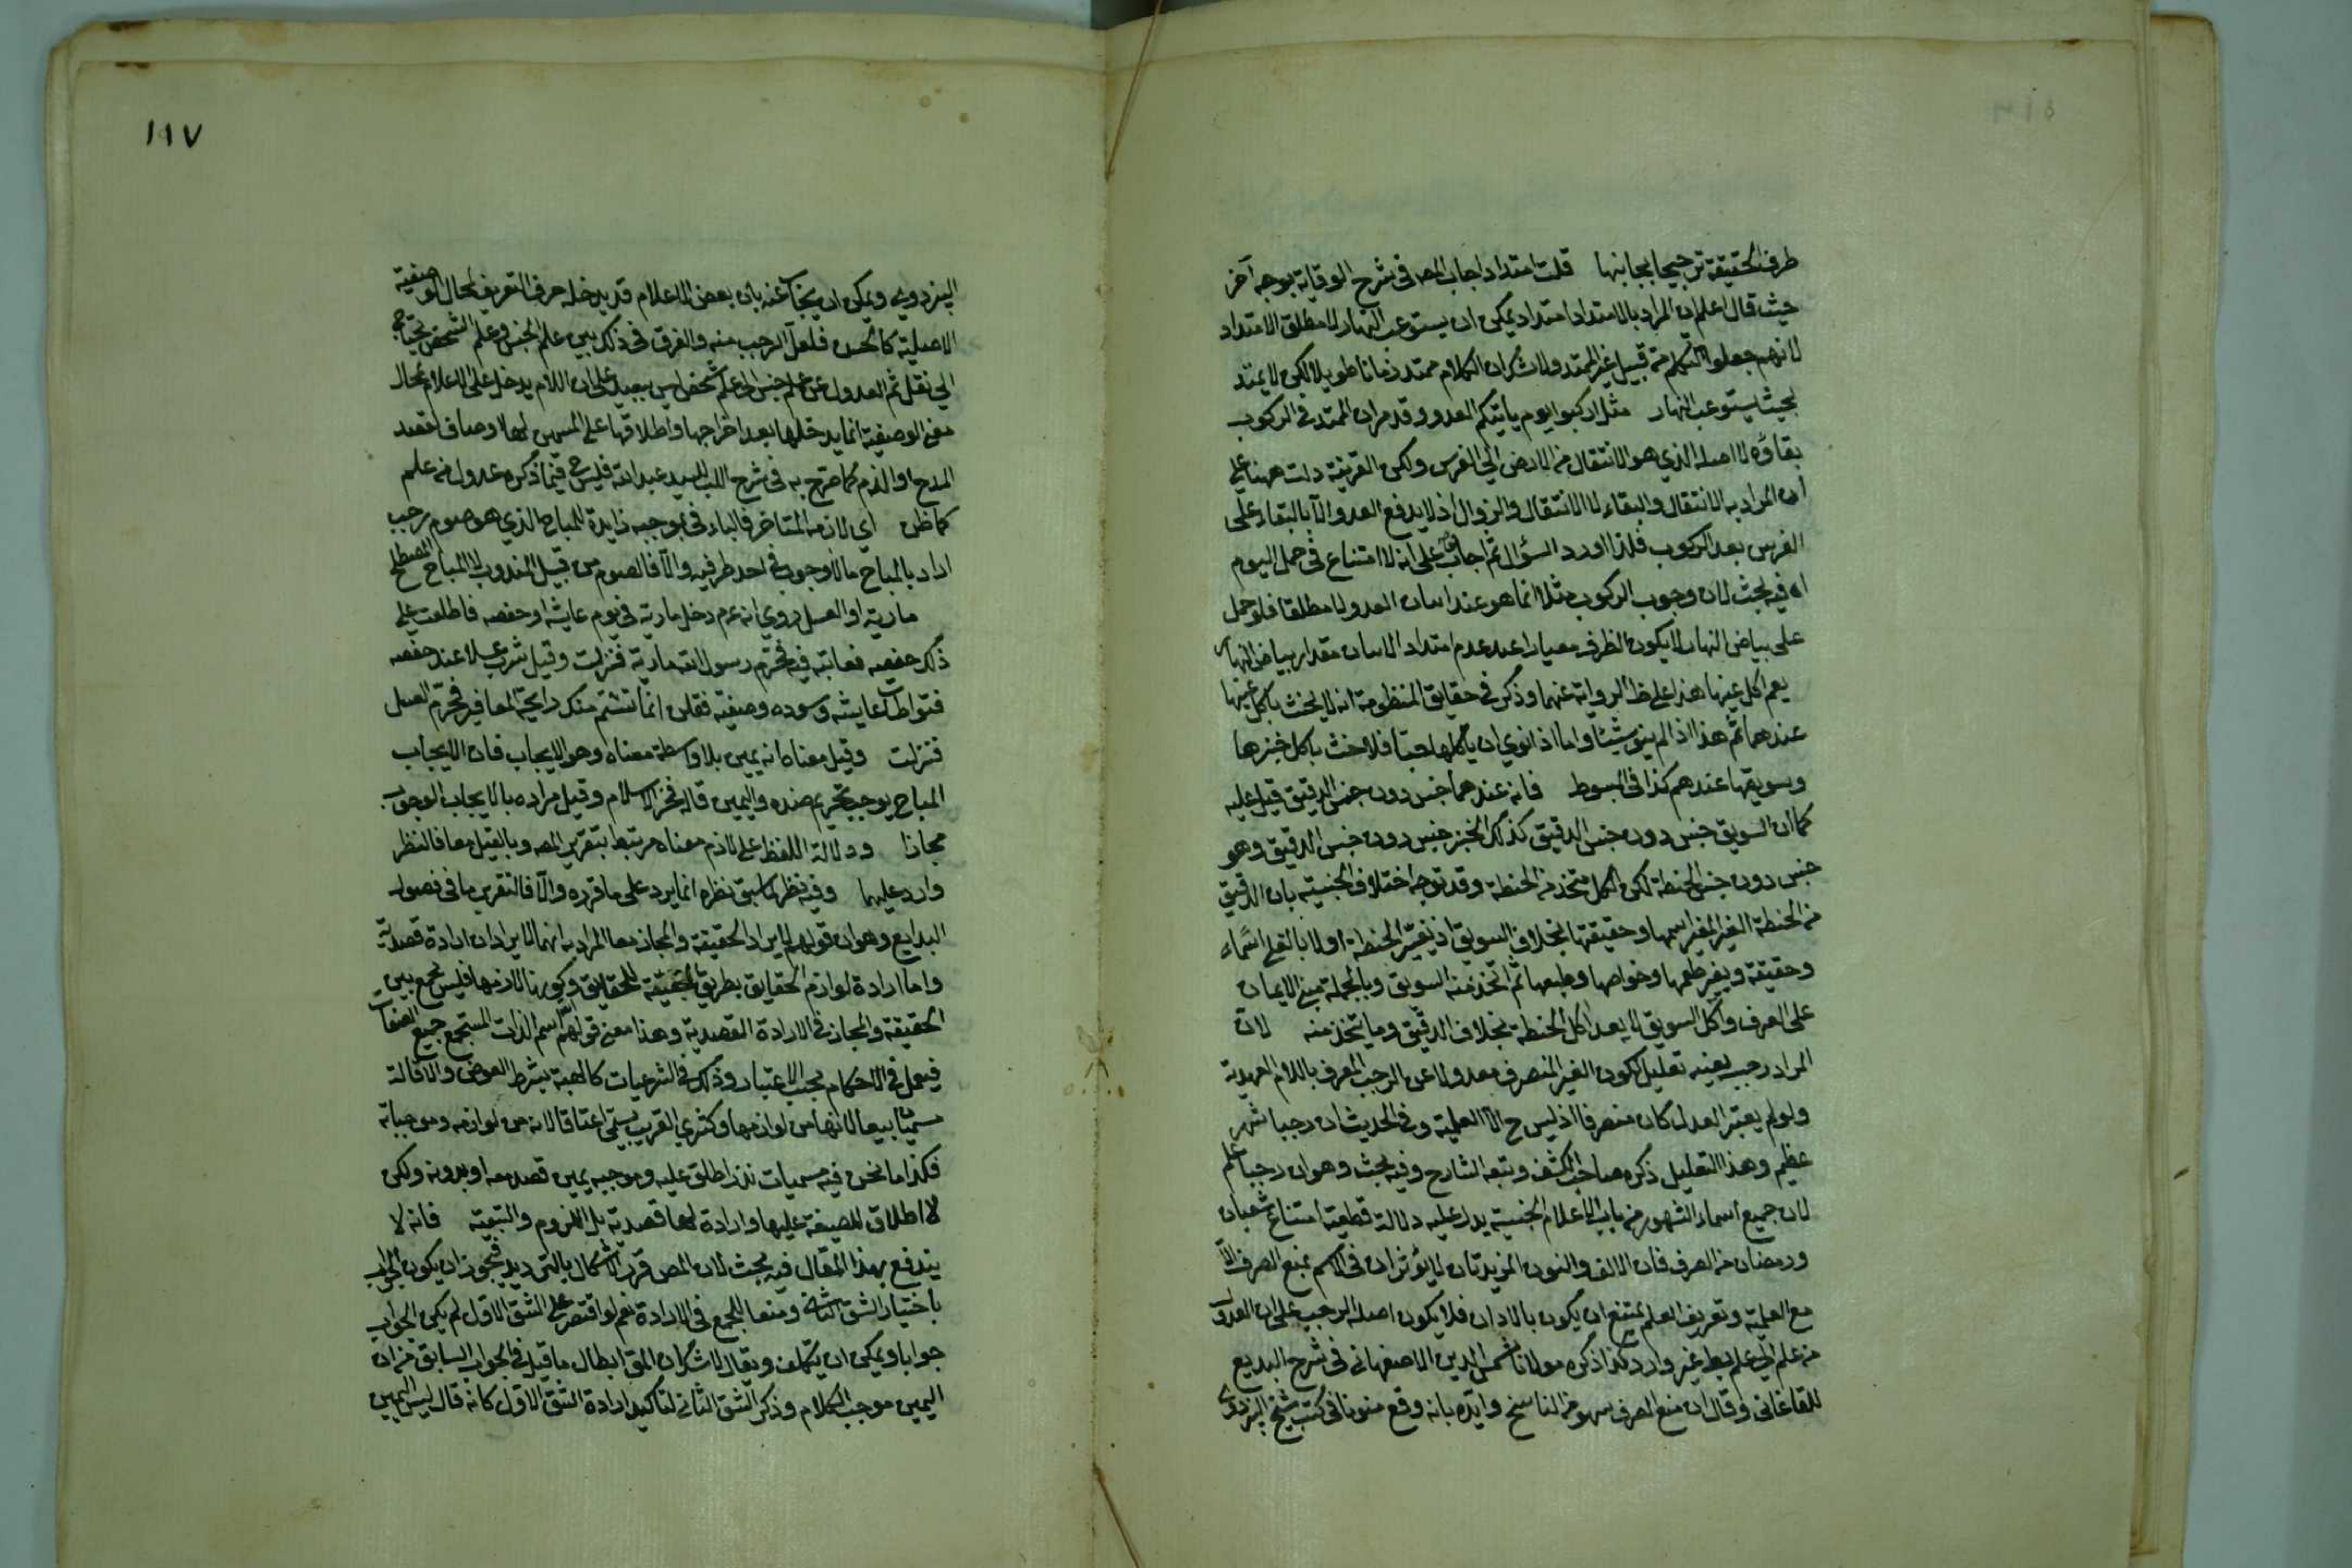 طرف الحقيقة ترجيحا بجانبها قلت امتداد اجاب المص في شرح الوقاية بوجه آخر
حيث قال اعلم ان المراد بالامتداد امتداد يمكن ان يستوعب النهار لا مطلق الامتداد
لانهم جعلوا التكلم من قبيل غير الممتد ولا شك ان الكلام ممتد زمانا طويلا لكن لا يمتد
بحيث يستوعب النهار مثل اركبوا يوم ياتيكم العدو وقد مر ان الممتد في الركوب
بقاؤه لا اصله الذي هو الانتقال من الارض الي الفرس ولكن القرينة دلت ههنا علي
ان المراد به الانتقال والبقاء لا الانتقال والنزول اذ لا يدفع العدو الا بالبقاء على
الفرس بعد الركوب فلذا اورد السؤال ثم اجاب على انه لا امتناع في حمل اليوم
اه فيه بحث لان وجوب الركوب مثلا انما هو عند اتيان العدو لا مطلقا فلو حمل
على بياض النهار لا يكون الظرف معيارا عند عدم امتداد الاتيان مقدار بياض النهار
يعم اكل عينها هذا على ظ الرواية عنهما وذكر في حقايق المنظومة انه لا يحنث باكل عينها
عندهما ثم هذا اذا لم ينو شيئا واما اذا نوي ان ياكلها حبا فلا حنث باكل خبزها
وسويقها عندهم كذا في المبسوط فانه عندهما جنس دون جنس الدقيق قيل عليه
كما ان السويق جنس دون جنس الدقيق كذلك الخبز جنس دون جنس الدقيق وهو
جنس دون جنس الحنطة لكن الكل متخذ من الحنطة وقد توجه اختلاف الجنسية بان الدقيق
من الحنطة الغير المغير اسمها وحقيقتها بخلاف السويق اذ تغير الحنطة اولا بالقلي اسماء
وحقيقة ويغير طعمها وخواصها وطبعها ثم اتخذ منه السويق وبالجملة مبنى الايمان
على العرف واكل السويق لا يعد اكل الحنطة بخلاف الدقيق وما يتخذ منه لان
المراد رجب بعينه تعليل لكون الغير المنصرف معدولا عن الرجب المعرف باللام العهدية
ولو لم يعتبر العدل لكان منصرفا اذ ليس ح الا العلمية وفي الحديث ان رجبا شهر
عظيم وهذا التعليل ذكره صاحب الكشف وتبعه الشارح وفيه بحث وهو ان رجبا علم
لان جميع اسماء الشهور من باب الاعلام الجنسية يدل عليه دلالة قطعية امتناع شعبان
ورمضان من الصرف فان الالف والنون المزيدتان لا يؤثران في الاسم بمنع الصرف الا
مع العلمية وتعريف العلم يمتنع ان يكون بالاداة فلا يكون اصله الرجب على ان العدول
من علم الي علم بط غير وارد كذا ذكره مولانا شمس الدين الاصفهاني في شرح البديع
للقاغاني وقال ان منع الصرف سهو من الناسخ وايده بانه وقع منونا في كتب شيخ البزدوي
١١٧
البزدوي ويمكن ان يجاب عنه بان بعض الاعلام قد يدخله حرف التعريف لحال الوصفية
الاصلية كالحسن فلعل الرجب منه والفرق في ذلك بين علم الجنس وعلم الشخص يحتاج
الي نقل ثم العدول عن علم جنس الي علم شخص ليس ببعيد على ان اللام يدخل على الاعلام بحال
معنى الوصفية انما يدخلها بعد اخراجها واطلاقها على المسمين بها لاوصاف لقصد
المدح او الذم كما صرح به في شرح اللب للسيد عبد الله فليس فيما ذكره عدول من علم
كما ظن اي لازمه المتاخر فالباء في بموجبه زايدة المباح الذي هو صوم رجب
اراد بالمباح مالا وجوب في احد طرفيه والا فالصوم من قبيل المندوب لا المباح المصطلح
مارية او العسل روي انه عم دخل مارية في يوم عايشة او حفصه فاطلعت على
ذلك حفصه فعاتبته فيه فحرم رسول الله مارية فنزلت وقيل شرب عسلا عند حفصه
فتواطأت عايشه وسوده وصفيه فقلن انما نشتم منك رايحة المغافير فحرم العسل
فنزلت وقيل معناه انه يمين بلا واسطة معناه وهو الايجاب فان الايجاب
المباح يوجب تحريم ضده واليمين قاله فخر الاسلام وقيل مراده بالايجاب الوجوب
مجازا ودلالة اللفظ على لازم معناه مرتبط بتقرير المص وبالقيل معا فالنظر
وارد عليهما وفيه نظر لما سبق نظره انما يرد على ما قرره والا فالتقرير ما في فصول
البدايع وهو ان قولهم لا يراد الحقيقة والمجاز معا المراد به انهما لا يرادان ارادة قصدية
واما ارادة لوازم الحقايق بطريق التبعية للحقايق وكونها لازمها فليس بجمع بين
الحقيقة والمجاز في الارادة القصدية وهذا معنى قولهم اسم الذات المستجمع جميع الصفات
فيعمل في الاحكام بحسب الاعتبار وذلك في الشرعيات كالهبة بشرط العوض والاقالة
سميتا بيعا لانها من لوازمها وكشري القريب يسمى اعتاقا لانه من لوازمه وموجباته
فكذا ما نحن فيه مسميات نذر اطلق عليه وموجبه يمين قصد معه او بدونه ولكن
لا اطلاق للصيغة عليها وارادة لها قصدية بل اللزوم والتبعية فانه لا
يندفع بهذا المقال فيه بحث لان المص قرر الاشكال بالترديد فيجوز ان يكون الجواب
باختيار الشق الثاني ومنعا للجمع في الارادة نعم لو اقتصر على الشق الاول لم يكن الجواب
جوابا ويمكن ان يتكلف ويقال لا شك ان المق ابطال ما قيل في الجواب السابق من ان
اليمين موجب الكلام وذكر الشق الثاني لتاكيد ارادة الشق الاول كانه قال ليس اليمين